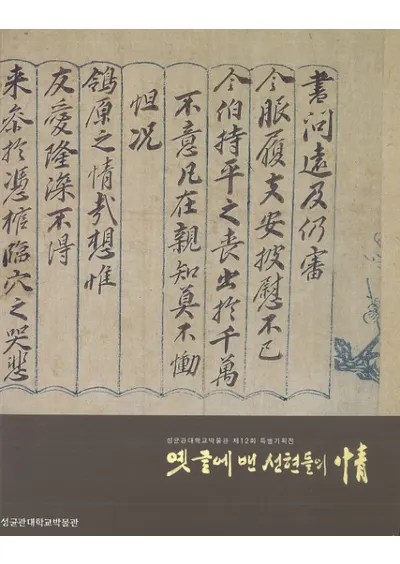 書問遠及仍審
令服履支安披慰不已
令伯持平之喪出於千萬
不意凡在親知莫不慟
怛况
鴒原之情哉想惟
友愛隆深不得
来叅於憑棺臨穴之哭悲
성균관대학교박물관 제12회 특별기획전
옛 글에 밴 선현들의 情
성균관대학교박물관